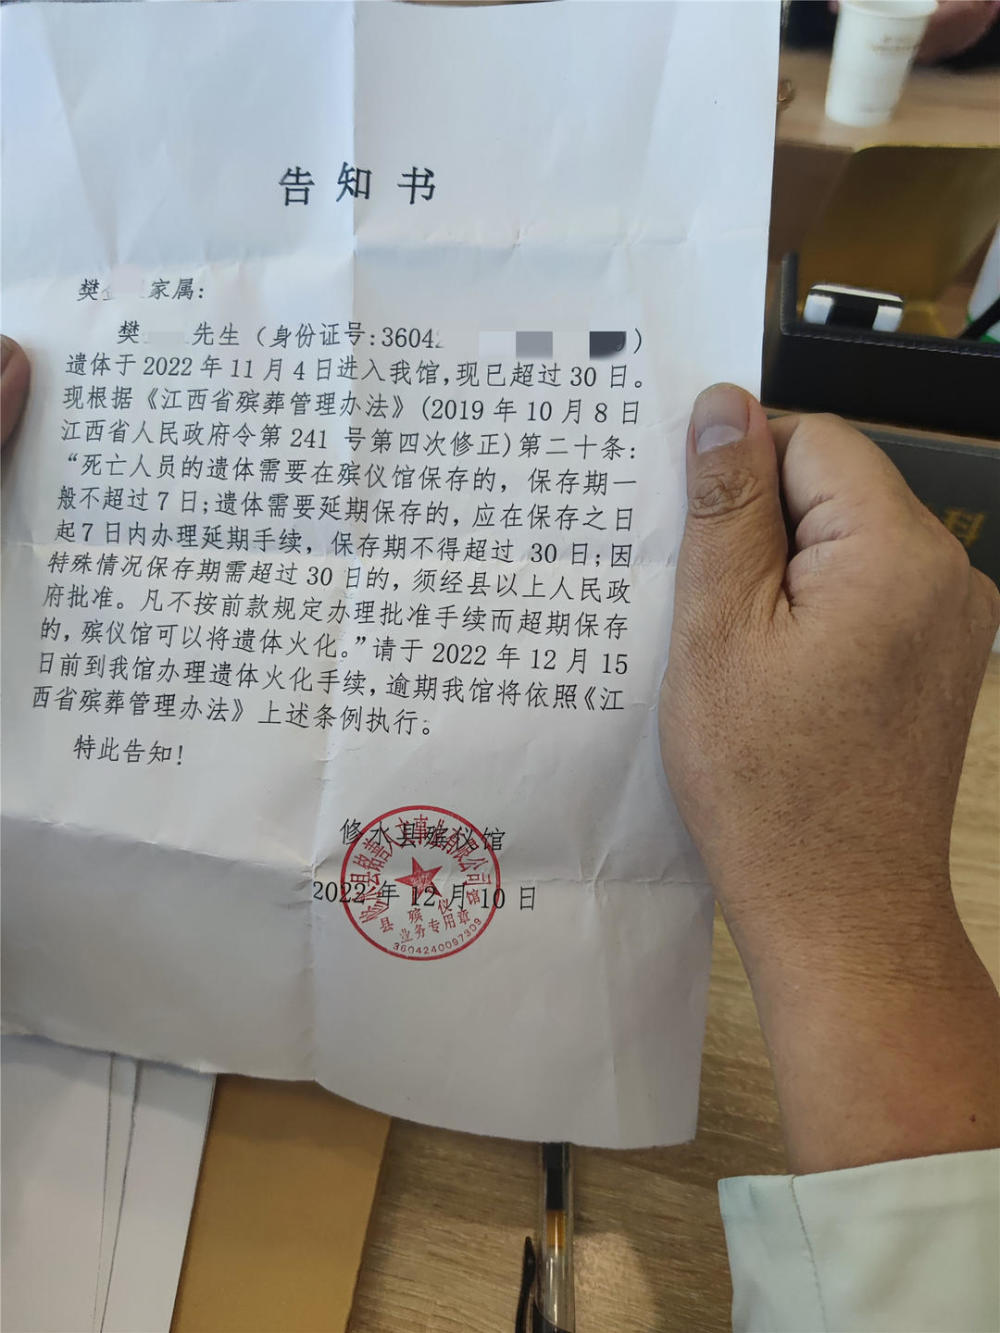 告知书
樊 家属：
樊 先生（身份证号:3604 ）
遗体于2022年11月4日进入我馆,现已超过30日。
现根据《江西省殡葬管理办法》(2019年10月8日
江西省人民政府令第241号第四次修正)第二十条:
“死亡人员的遗体需要在殡仪馆保存的，保存期一
般不超过7日;遗体需要延期保存的，应在保存之日
起7日内办理延期手续，保存期不得超过30日;因
特殊情况保存期需超过30日的，须经县以上人民政
府批准。凡不按前款规定办理批准手续而超期保存
的，殡仪馆可以将遗体火化。”请于2022年12月15
日前到我馆办理遗体火化手续，逾期我馆将依照《江
西省殡葬管理办法》上述条例执行。
特此告知！
修水县殡仪馆
2022年12月10日
县殡仪馆
业务专用章
3604240097309